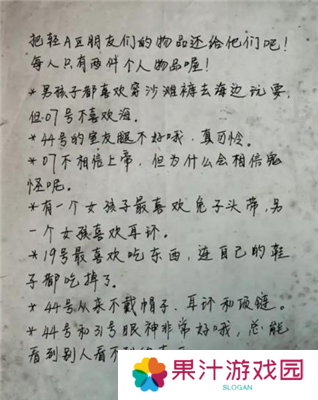 把轻A区朋友们的物品还给他们吧！
每人只有两件个人物品喔！
*男孩子都喜欢穿沙滩裤去海边玩耍，
但07号不喜欢海。
*44号的室友腿不好哦，真可怜。
*07不相信上帝，但为什么会相信鬼
怪呢。
*有一个女孩子最喜欢兔子头带，另
一个女孩喜欢耳环。
*19号最喜欢吃东西，连自己的鞋
子都吃掉了。
*44号从来不戴帽子、耳环和项链。
*44号和31号眼神非常好哦，总能
看到别人看不
果汁游戏园
SLOGAN